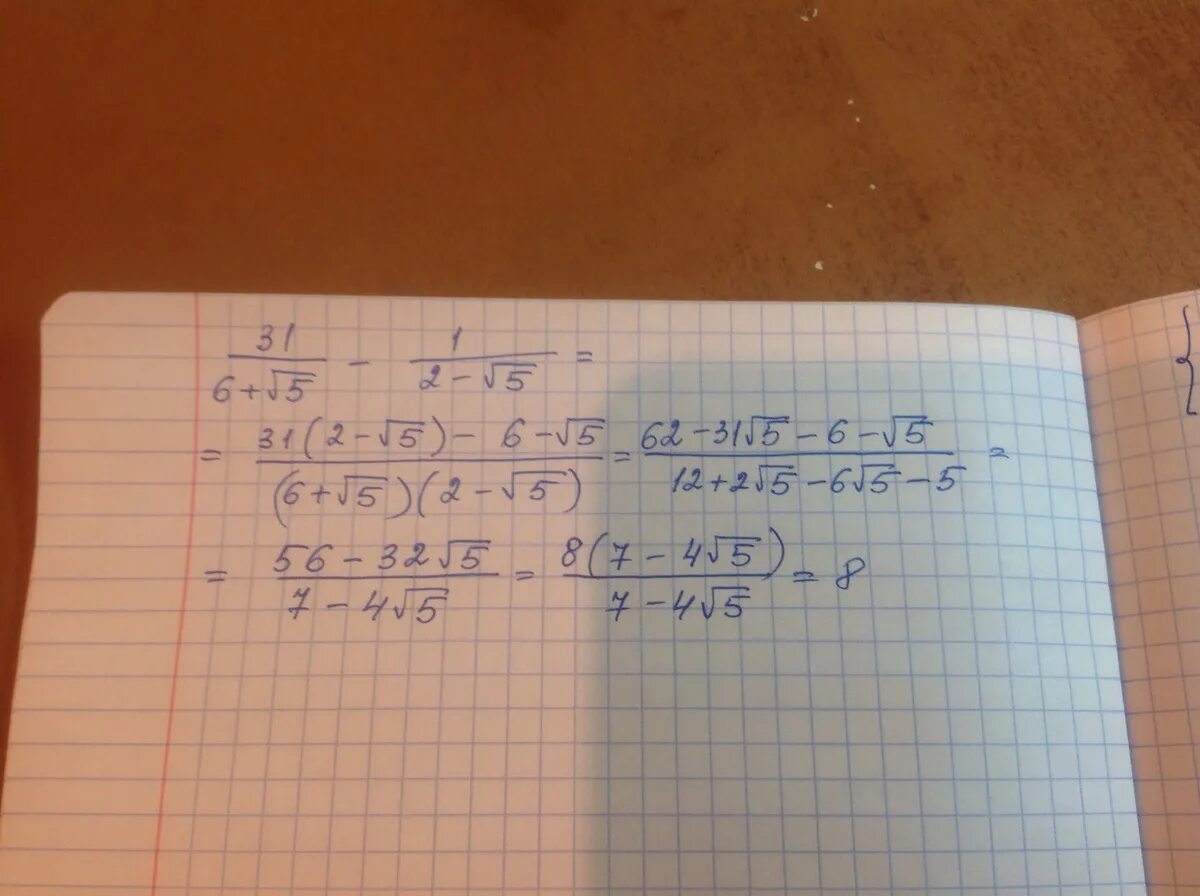 31/(6+√5) − 1/(2−√5) =
= (31(2−√5)− 6−√5)/((6+√5)(2−√5)) = (62−31√5−6−√5)/(12+2√5−6√5−5) =
= (56−32√5)/(7−4√5) = (8(7−4√5))/(7−4√5) = 8
{